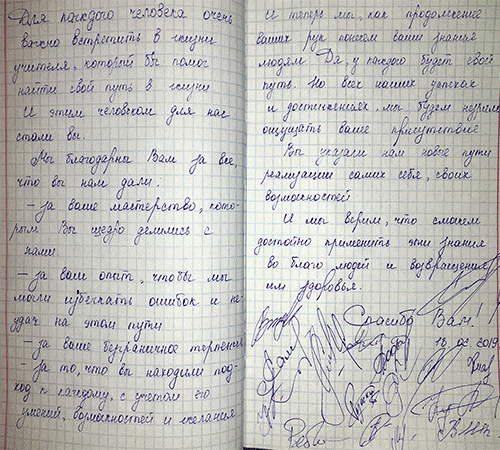 Для каждого человека очень
важно встретить в жизни
учителя, который бы помог
найти свой путь в жизни
И этим человеком для нас
стали вы.
Мы благодарны Вам за все,
что вы нам дали.
- за ваше мастерство, кото-
рым Вы щедро делились с
нами
- за ваш опыт, чтобы мы
могли избежать ошибок и не-
удач на этом пути
- за ваше безграничное терпение
- за то, что вы находили под-
ход к каждому, с учетом его
умений, возможностей и желания
И теперь мы, как продолжение
ваших рук понесем ваши знания
людям Да, у каждого будет свой
путь. Но всех наших успехах
и достижениях, мы будем незримо
ощущать ваше присутствие
Вы указали нам новые пути
реализации самих себя, своих
возможностей
И мы верим, что сможем
достойно применить эти знания
во благо людей и возвращения
им здоровья.
Спасибо Вам!